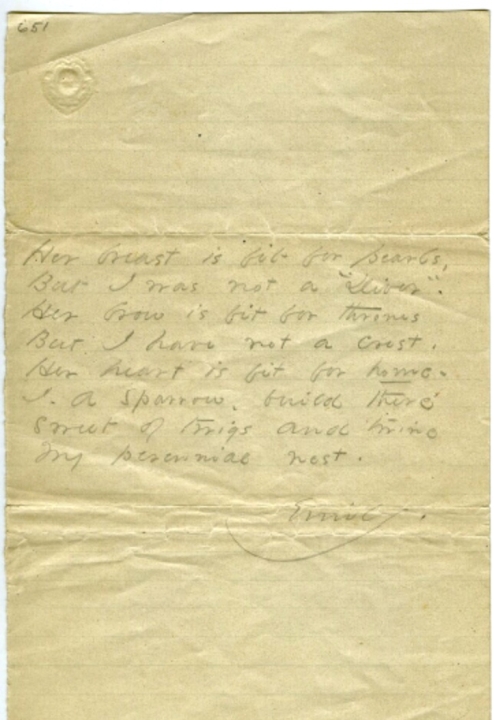 651
Her breast is fit for pearls,
But I was not a "Diver".
Her brow is fit for thrones
But I have not a crest.
Her heart is fit for home.
I - a Sparrow - build there
Sweet of twigs and twine
My perennial nest.
Emily.